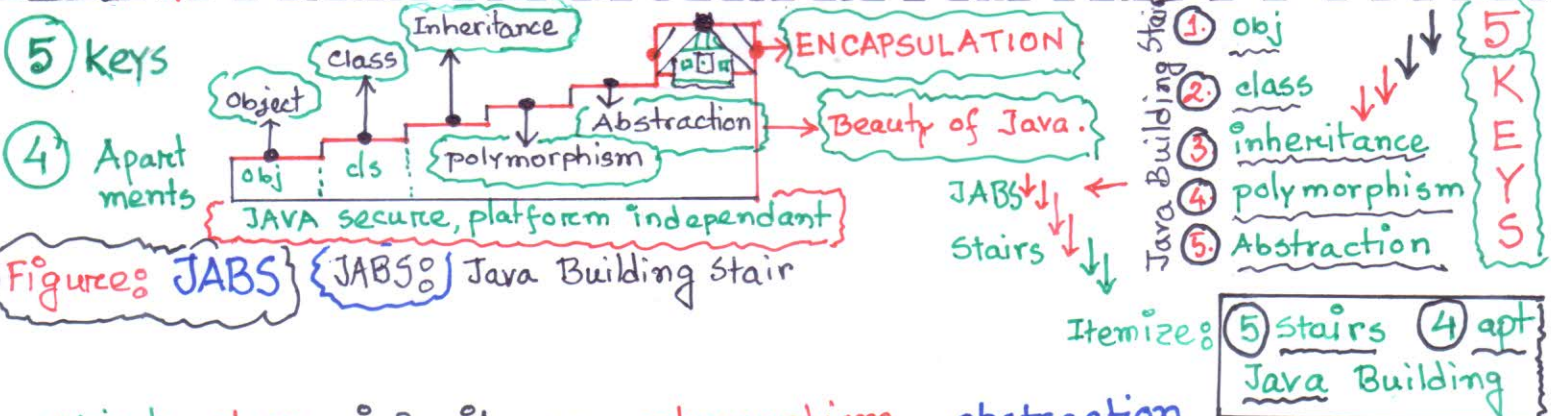 5 Keys
4 Apart
ments
Object
Class
Inheritance
polymorphism
Abstraction
obj
cls
ENCAPSULATION
Beauty of Java.
JAVA secure, platform independant
Figure: JABS
JABS: Java Building Stair
JABS
Stairs
Java Building Stair
1. obj
2. class
3. inheritance
4. polymorphism
5. Abstraction
5 KEYS
Itemize: 5 stairs 4 apt
Java Building
abstraction